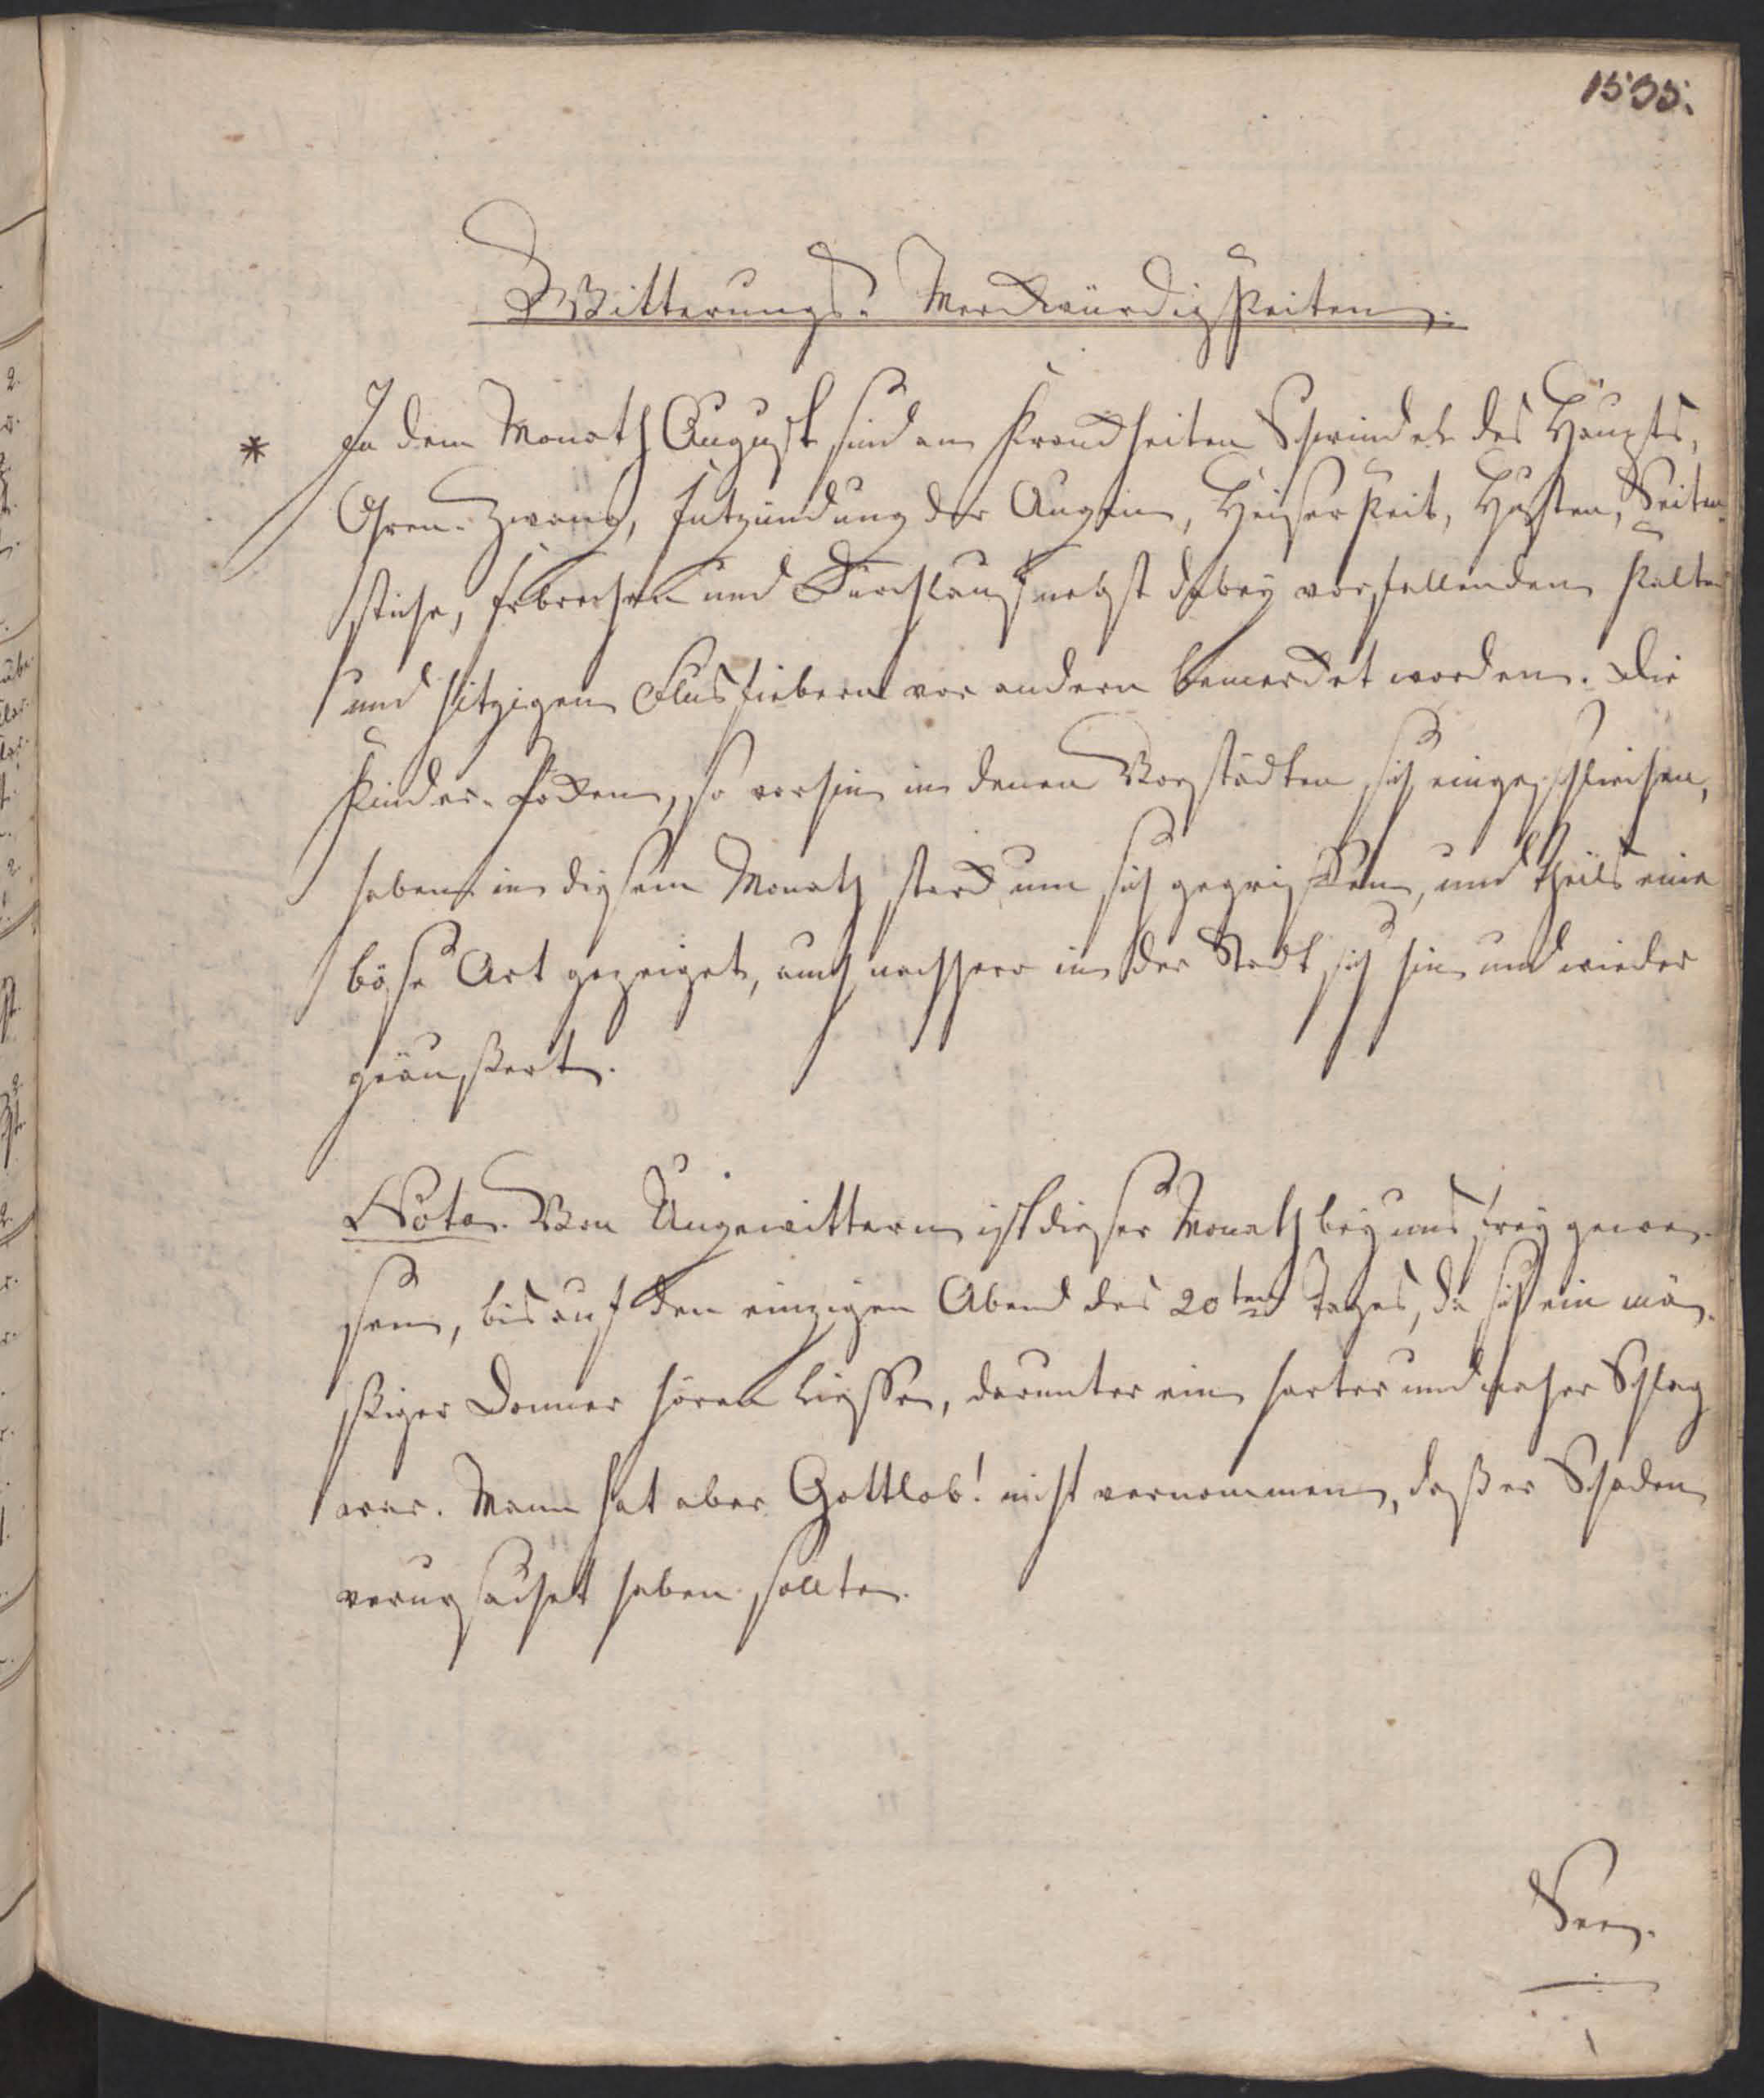 1535.
Witterungs-Merckwürdigkeiten.
* In dem Monath August sind an Kranckheiten Schwindel des Haupts,
Ohren-Zwang, Entzündung der Augen, Heiserkeit, Husten, Seiten-
stiche, Erbrechen und Durchlauf nebst dabey vorfallenden kalten
und hitzigen Flusfiebern vor andern bemercket worden. Die
Kinder-Pocken, so vorhin in denen Vorstädten sich eingeschlichen,
haben in diesem Monath starck um sich gegriffen, und theils eine
böse Art gezeiget, auch nachhero in der Stadt sich hin und wieder
geäußert.
Nota. Von Ungewittern ist dieser Monath bey uns frey gewe-
sen, bis auf den einzigen Abend des 20ten Tages, da sich ein mä-
ßiger Donner hören liesse, darunter ein harter und naher Schlag
war. Mann hat aber Gottlob! nicht vernommen, daß er Schaden
verursachet haben sollte.